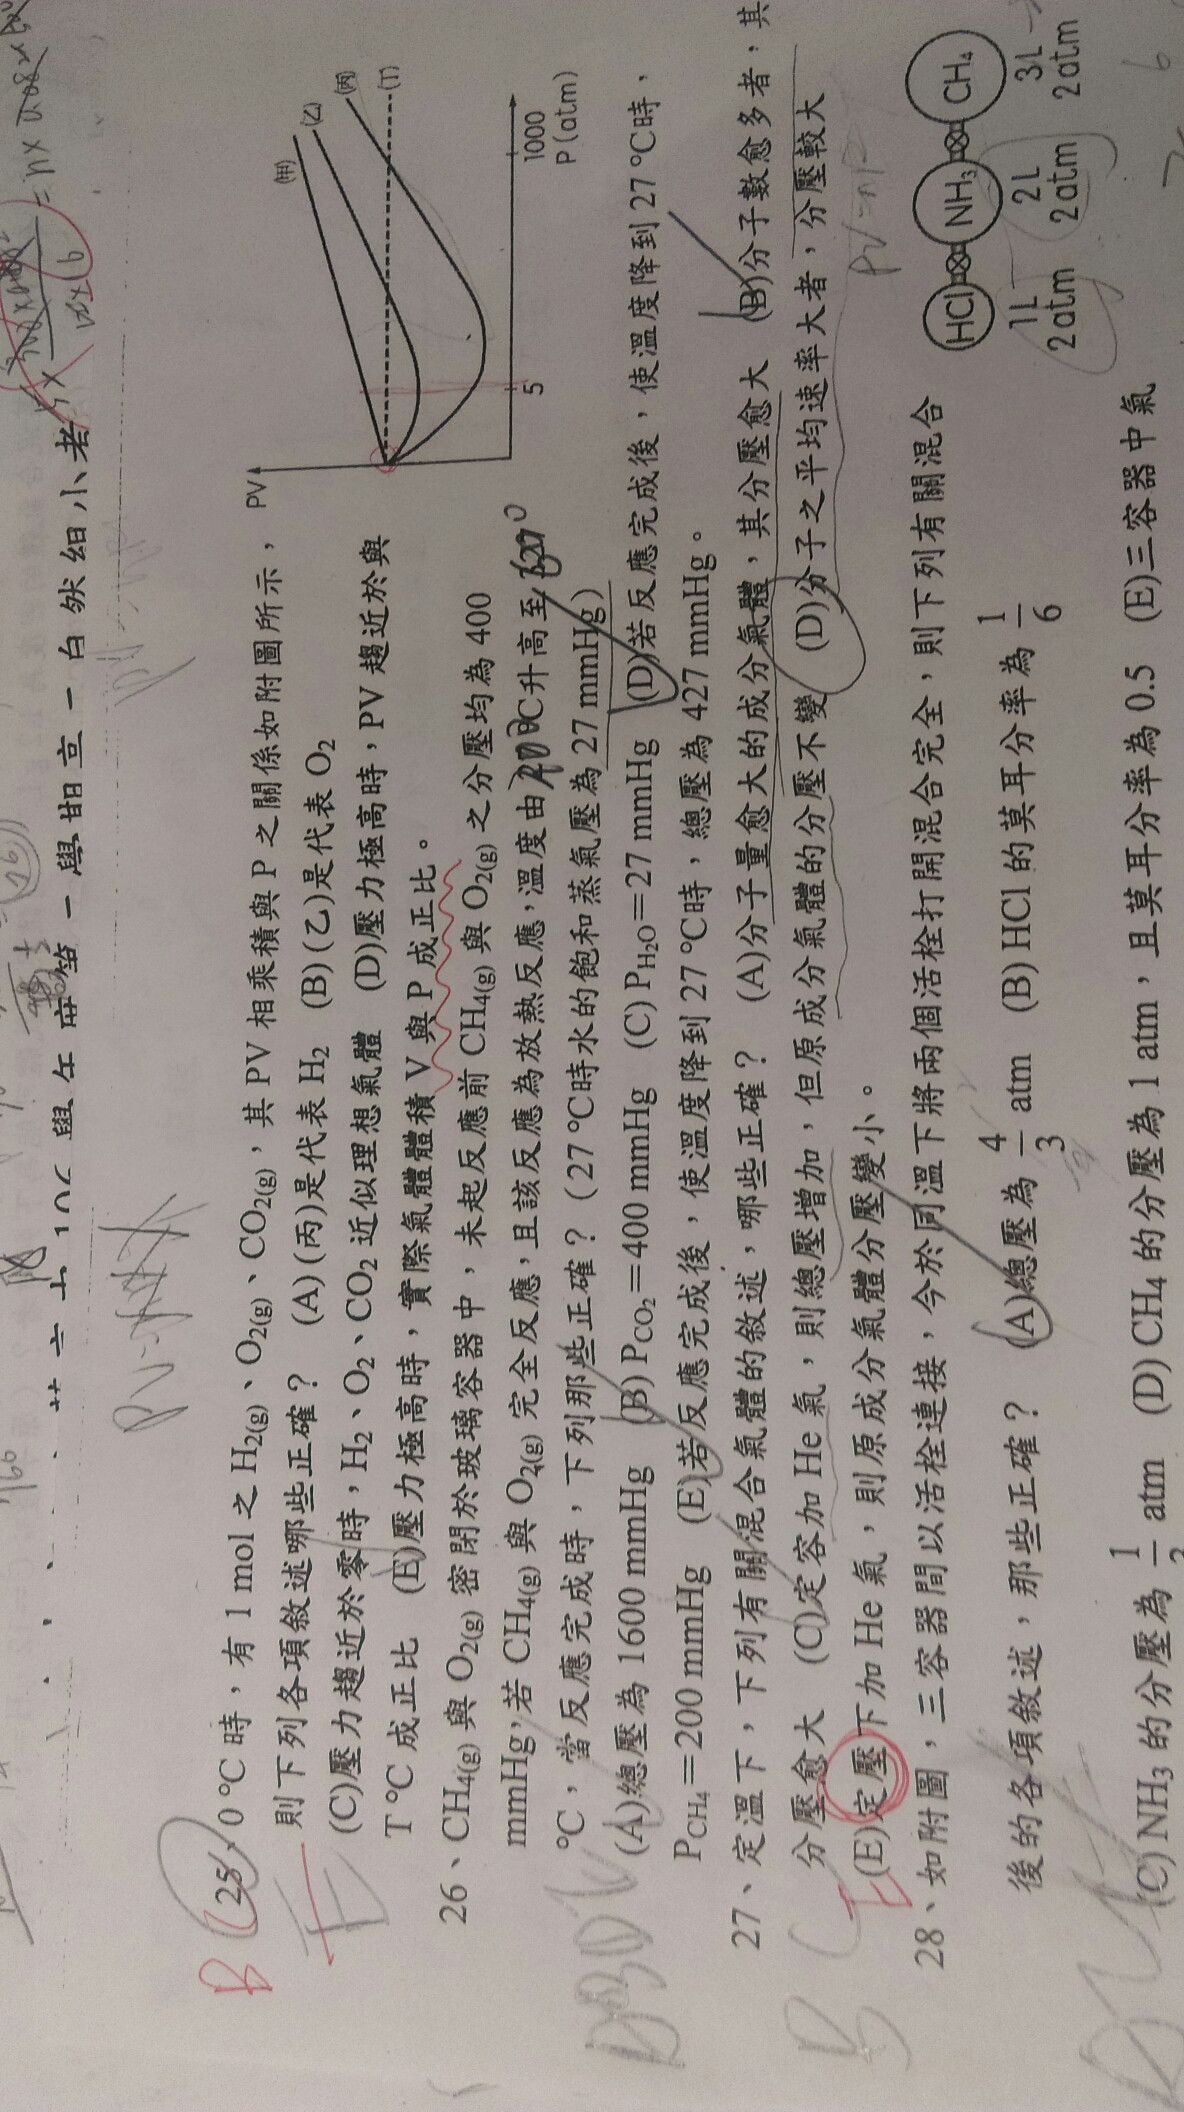 一○六學年度第一學期高一自然組小考
25、0 ℃時，有 1 mol 之 H2(g)、O2(g)、CO2(g)，其 PV 相乘積與 P 之關係如附圖所示，
則下列各項敘述哪些正確？ (A) (丙)是代表 H2 (B) (乙)是代表 O2
(C)壓力趨近於零時，H2、O2、CO2 近似理想氣體 (D)壓力極高時，PV 趨近於與
T ℃ 成正比 (E)壓力極高時，實際氣體體積 V 與 P 成正比。
PV
(甲)
(乙)
(丙)
(丁)
5
1000
P (atm)
26、CH4(g) 與 O2(g) 密閉於玻璃容器中，未起反應前 CH4(g) 與 O2(g) 之分壓均為 400
mmHg，若 CH4(g) 與 O2(g) 完全反應，且該反應為放熱反應，溫度由 ℃升高至
℃，當反應完成時，下列那些正確？（27 ℃時水的飽和蒸氣壓為 27 mmHg）
(A)總壓為 1600 mmHg (B) PCO2＝400 mmHg (C) PH2O＝27 mmHg (D)若反應完成後，使溫度降到 27 ℃時，
PCH4＝200 mmHg (E)若反應完成後，使溫度降到 27 ℃時，總壓為 427 mmHg。
27、定溫下，下列有關混合氣體的敘述，哪些正確？ (A)分子量愈大的成分氣體，其分壓愈大 (B)分子數愈多者，其
分壓愈大 (C)定容加 He 氣，則總壓增加，但原成分氣體的分壓不變 (D)分子之平均速率大者，分壓較大
(E)定壓下加 He 氣，則原成分氣體分壓變小。
PV=nR
28、如附圖，三容器間以活栓連接，今於同溫下將兩個活栓打開混合完全，則下列有關混合
後的各項敘述，那些正確？ (A)總壓為 4/3 atm (B) HCl 的莫耳分率為 1/6
(C) NH3 的分壓為 atm (D) CH4 的分壓為 1 atm，且莫耳分率為 0.5 (E)三容器中氣
HCl NH3 CH4
1L 2L 3L
2atm 2atm 2atm